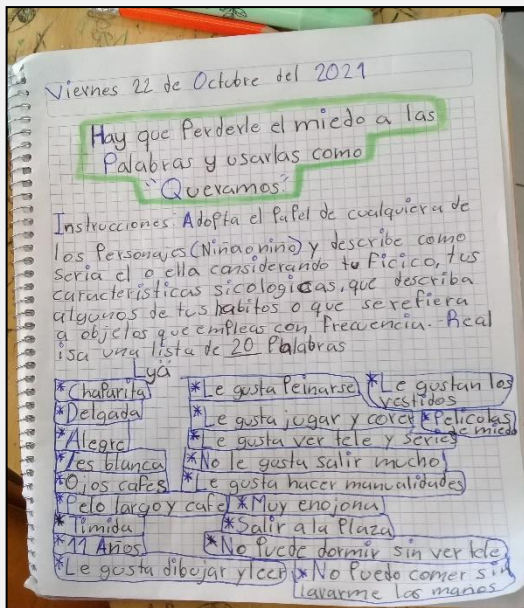 Viernes 22 de Octubre del 2021
Hay que Perderle el miedo a las
Palabras y usarlas como
"Queramos"
Instrucciones: Adopta el Papel de cualquiera de
los Personajes (Niña o niño) y describe como
seria el o ella considerando tu ficico, tus
caracteristicas sicologicas, que describa
algunos de tus habitos o que se refiera
a objetos que empleas con frecuencia.-Real
isa una lista de 20 Palabras
Lya
*Chaparita
*Delgada
*Alegre
*Tes blanca
*Ojos cafes
*Pelo largo y cafe
*Timida
*11 Años
*Le gusta dibujar y leer
*Le gusta Peinarse
*Le gusta jugar y corer
*Le gusta ver tele y series
*No le gusta salir mucho
*Le gusta hacer manualidades
*Muy enojona
*Salir a la Plaza
*No Puede dormir sin ver tele
*No Puedo comer sin
lavarme las manos
*Le gustan los
vestidos
*Peliculas
de miedo